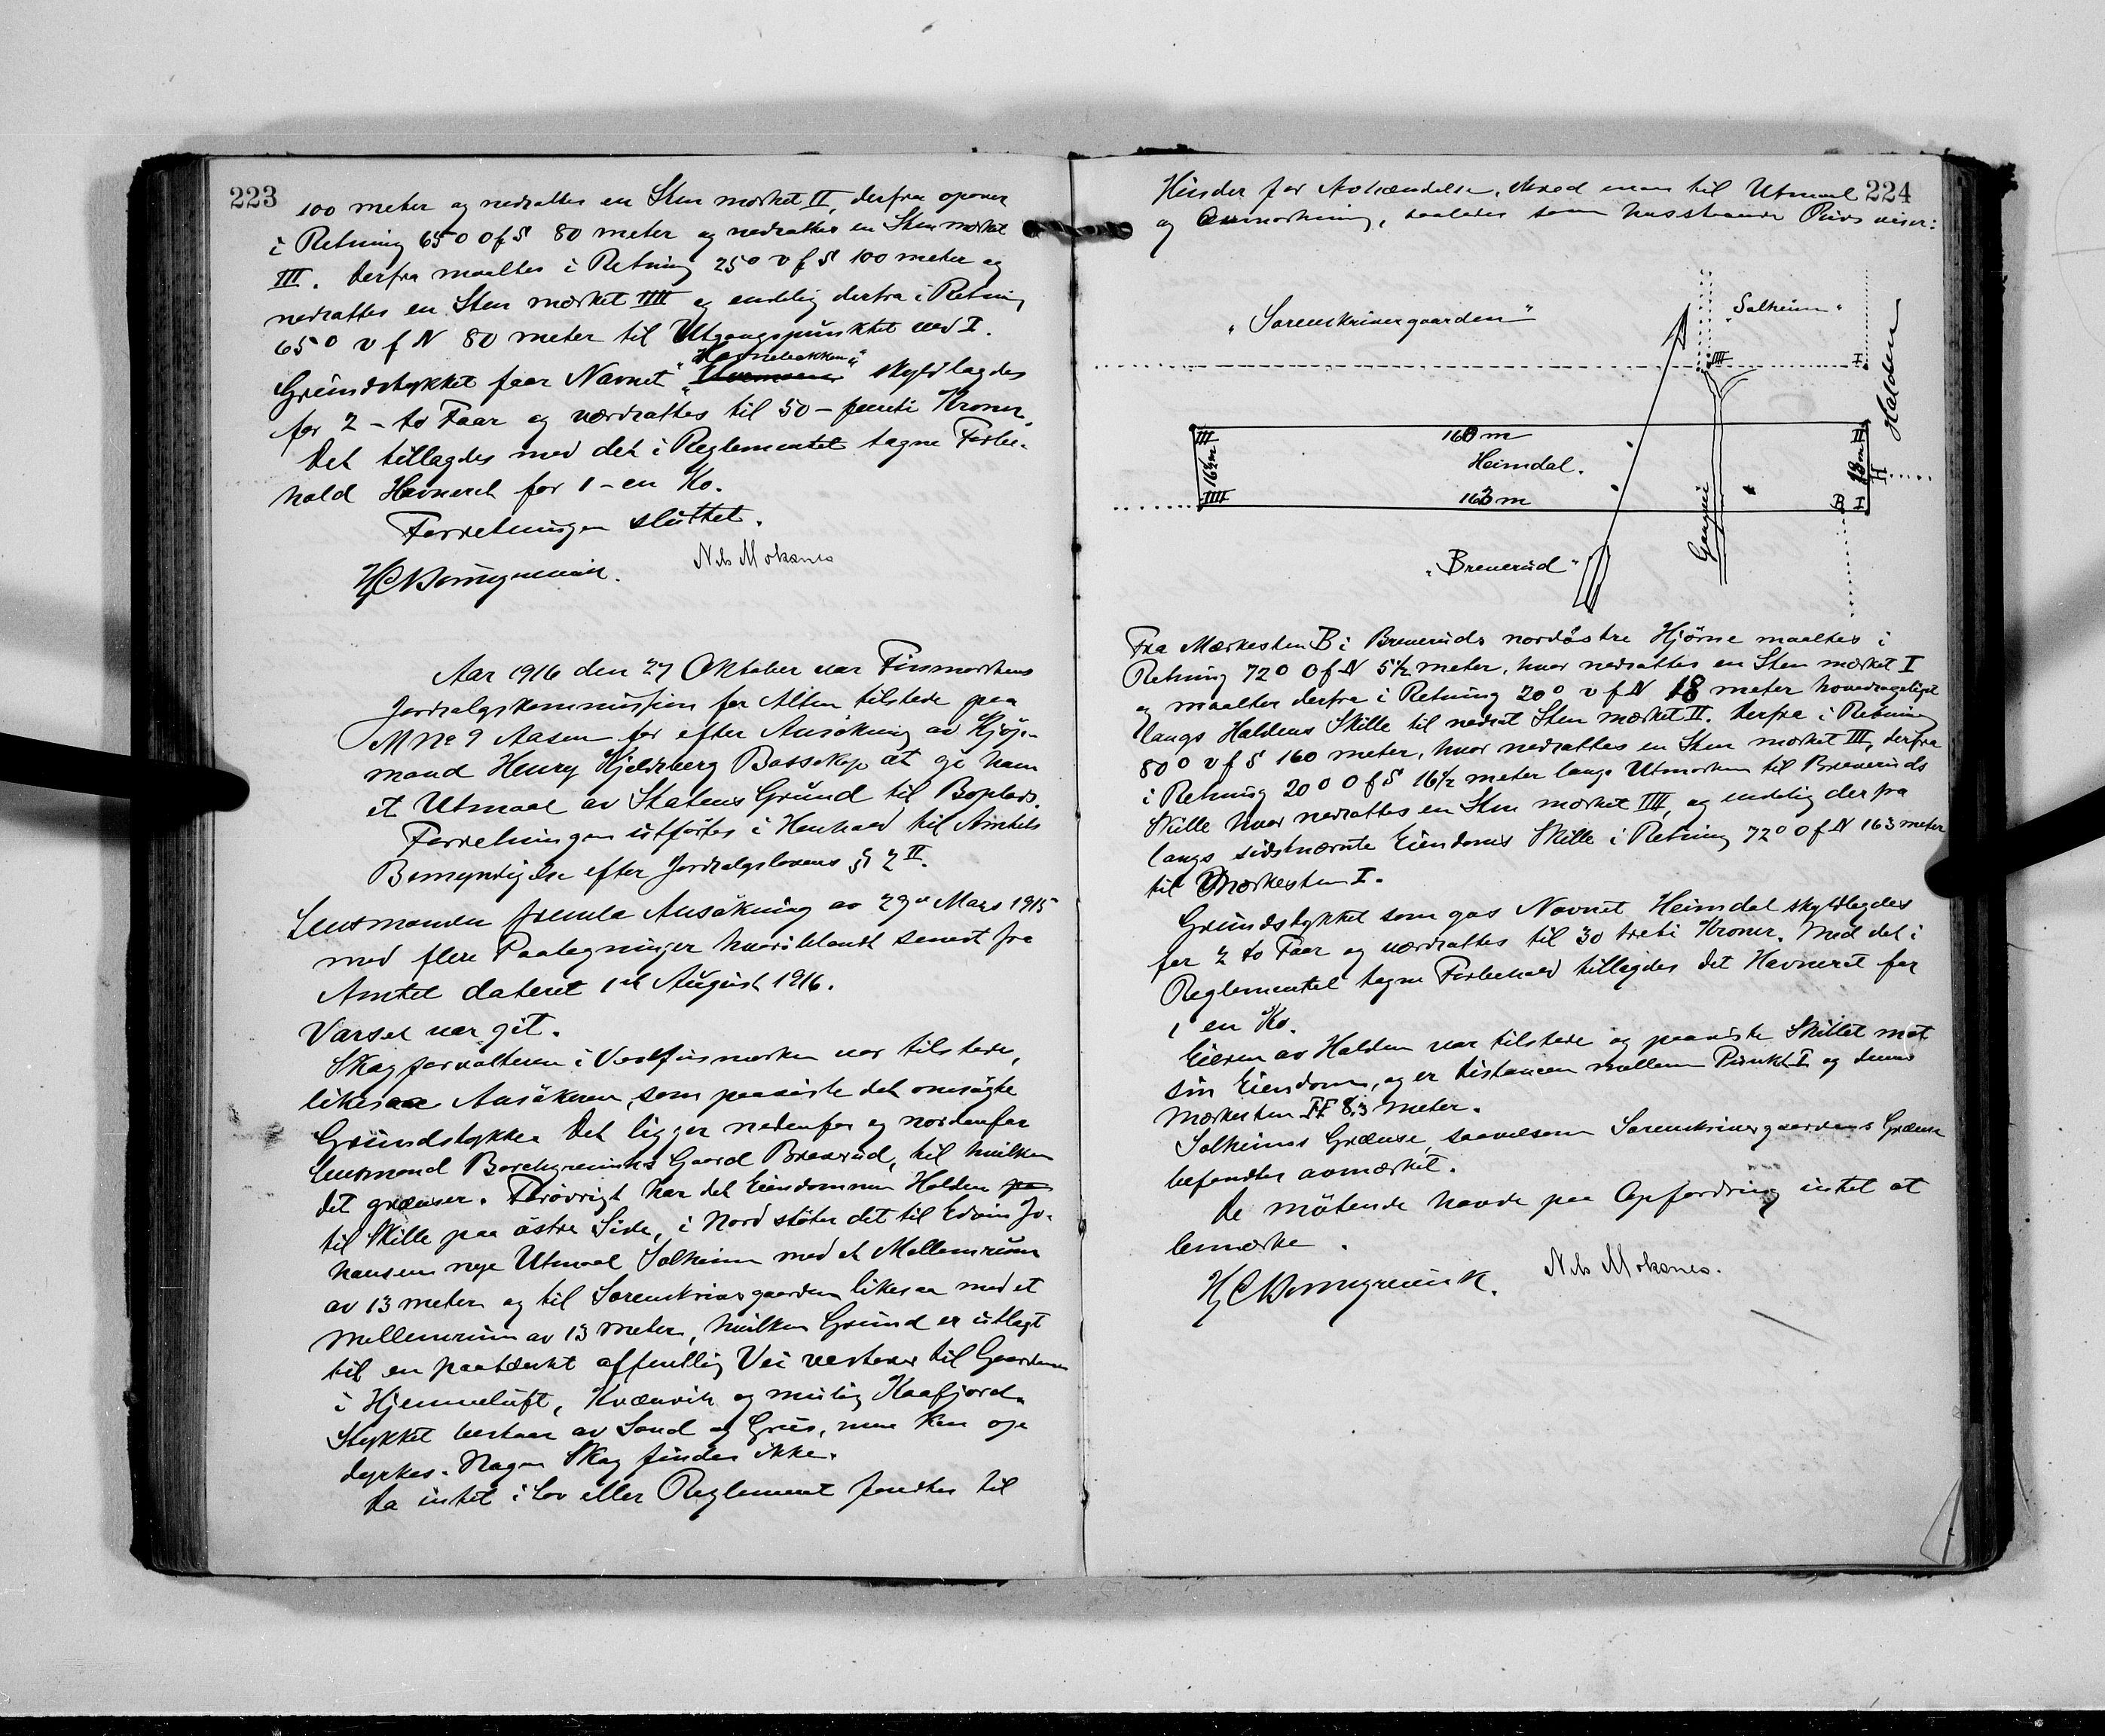 223
100 meter og nedsattes en Sten mærket II, derfra opover
i Retning 65° O f S 80 meter og nedsattes en Sten mærket
III. Derfra maaltes i Retning 25° V f S 100 meter og
nedsattes en Sten mærket IIII og endelig derfra i Retning
65° V f N 80 meter til Utgangspunktet ved I.
"Havnebakken"
Grundstykket faar Navnet skyldlagdes
for 2 - to Faar og værdsattes til 50 - femti Kroner.
Det tillagdes med det i Reglementet tagne Forbe-
hold Havneret for 1 - en Ko.
Forretningen sluttet.
Nils Moksnes
Aar 1916 den 27 Oktober var Finmarkens
Jordsalgskommission for Alten tilstede paa
M No 9 Aasen for efter Ansøkning av Kjøp-
mand Henry Kjeldsberg Bossekop at gi ham
et Utmaal av Statens Grund til Boplads.
Forretningen utførtes i Henhold til Amtets
Bemyndigelse efter Jordsalgslovens § 2 II.
Lensmanden fremla Ansøkning av 29de Mars 1915
med flere Paategninger hvoriblandt senest fra
Amtet dateret 1ste August 1916.
Varsel var git.
Skogforvalteren i Vestfinmarken var tilstede,
likesaa Ansøkeren, som paaviste det omsøgte
Grundstykke. Det ligger nedenfor og nordenfor
Lensmand Borchgrevinks Gaard Breverud, til hvilken
det grænser. Forøvrigt har det Eiendommen Halden paa
til Skille paa østre Side, i Nord støter det til Edvin Jo-
hansens nye Utmaal Solheim med et Mellemrum
av 13 meter og til Sorenskrivergaarden likesaa med et
Mellemrum av 13 meter, hvilken Grund er utlagt
til en paatænkt offentlig Vei vestover til Gaardene
i Hjemmeluft, Kvænvik og mulig Kaafjord.
Stykket bestaar av Sand og Grus, men kan op-
dyrkes. Nogen Skog findes ikke.
Da intet i Lov eller Reglement fandtes til
224
Hinder for Avhændelse, skred man til Utmaal
og Avmerkning, saaledes som hosstaaende Rids viser:
"Sorenskrivergaarden"
"Solheim"
Halden
IIII
I
III
160 m
II
16½ m
Heimdal.
18 m
H
IIII
163 m
B I
Gangvei
"Breverud"
Fra Mærkesten B i Breveruds nordøstre Hjørne maaltes i
Retning 72° O f N 5½ meter, hvor nedsattes en Sten mærket I
og maaltes derfra i Retning 20° V f N 18 meter hovedsageligst
langs Haldens Skille til nedsat Sten mærket II. Derfra i Retning
80° V f S 160 meter, hvor nedsattes en Sten mærket III, derfra
i Retning 20° O f S 16½ meter langs Utmarken til Breveruds
Skille hvor nedsattes en Sten mærket IIII, og endelig derfra
langs sidstnævnte Eiendoms Skille i Retning 72° O f N 163 meter
til Mærkesten I.
Grundstykket som gas Navnet Heimdal skyldlagdes
for 2 to Faar og værdsattes til 30 treti Kroner. Med det i
Reglementet tagne Forbehold tillagdes det Havneret for
1 en Ko.
Eieren av Halden var tilstede og paaviste Skillet mot
sin Eiendom, og er Distancen mellem Punkt I og denne
Mærkesten H 8,3 meter.
Solheims Grænse, saavelsom Sorenskrivergaardens Grænse
befandtes avmærket.
De møtende havde paa Opfordring intet at
bemærke.
Nils Moksnes.